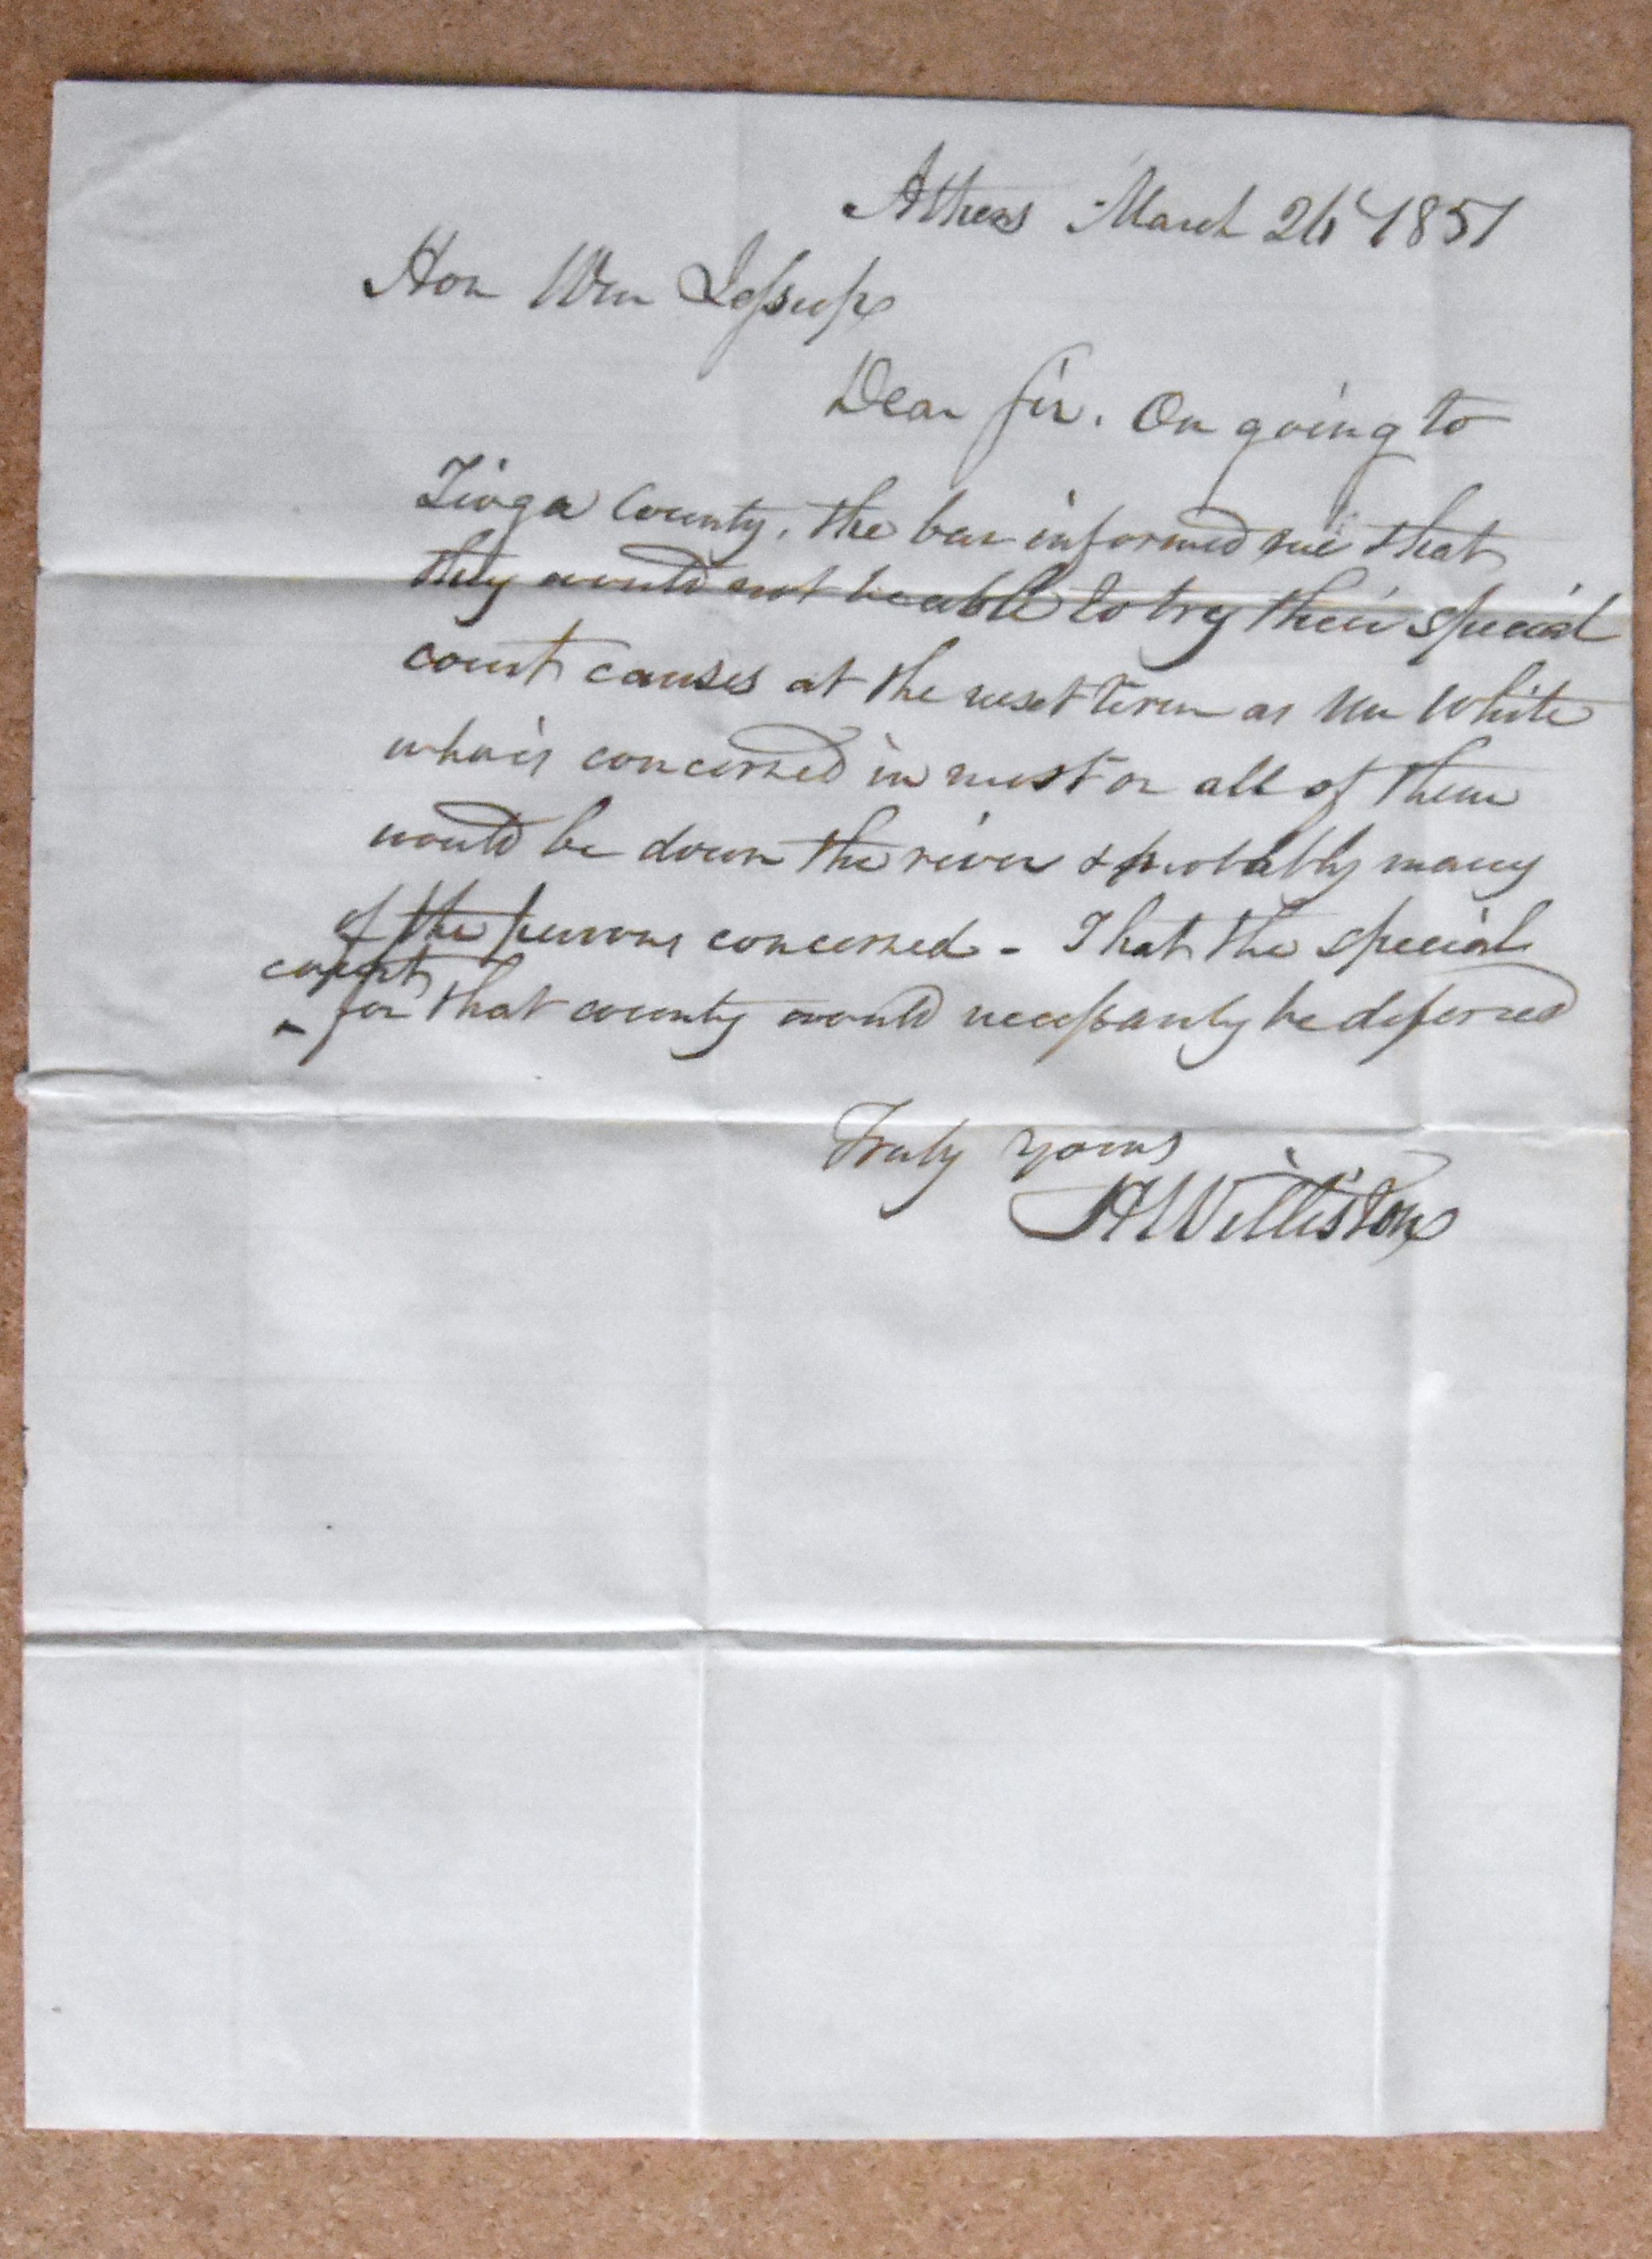 Athens March 26 1851
Hon Wm Jessup
Dear Sir. On going to
Tioga County, the bar informed me that
they would not be able to try their special
court causes at the next term as Mr White
who is concerned in most or all of them
would be down the river & probably many
of the persons concerned - That the special
court
^ for that county would necessarily be deferred
Truly yours
H Williston